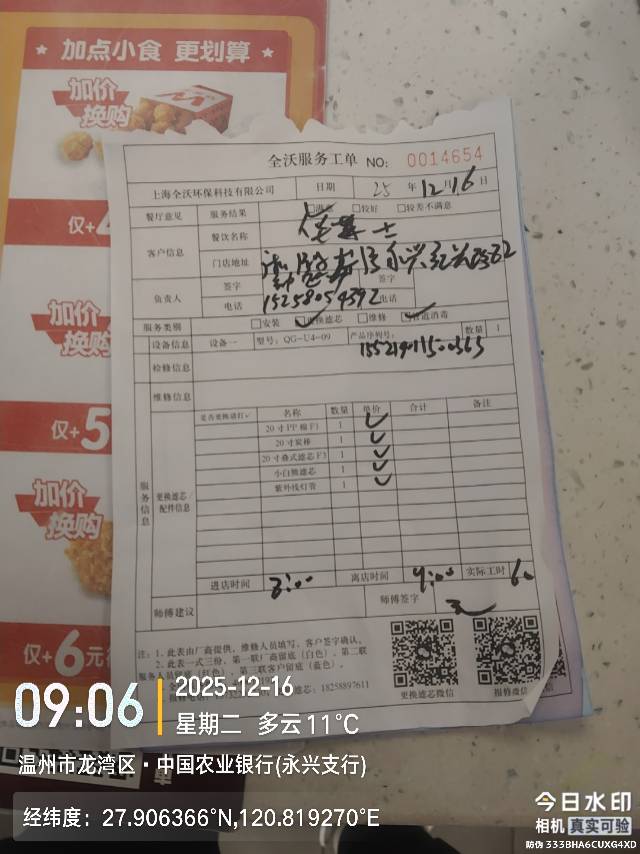 加点小食 更划算
加价
换购
仅+4
加价
换购
仅+5
加价
换购
仅+6元
全沃服务工单 NO: 0014654
上海全沃环保科技有限公司 日期 25 年 12 月 16 日
餐厅意见 服务结果 □满意 □较好 □较差不满意
客户信息 餐饮名称
门店地址
负责人 签字 签字
电话 15258054392 电话
服务类别 □安装 更换滤芯 □维修 管道消毒
设备信息 设备一 型号: QG-U4-09 产品序列号: 数量 1
检修信息
维修信息
服务信息 更换滤芯/配件信息
是否更换请打✓ 名称 数量 单价 合计 备注
20寸PP棉F1 1 ✓
20寸炭棒 1 ✓
20寸叠式滤芯F3 1 ✓
小白熊滤芯 1 ✓
紫外线灯管 1 ✓
进店时间 8:00 离店时间 9:00 实际工时 60
师傅建议 师傅签字
注: 1、此表由厂商提供, 维修人员填写, 客户签字确认。
2、此表一式三份, 第一联厂商留底(白色)、第二联
服务人员留底(红色)、第三联客户留底(蓝色)。
18258897611
更换滤芯微信 报修微信
09:06
2025-12-16
星期二 多云 11°C
温州市龙湾区·中国农业银行(永兴支行)
经纬度: 27.906366°N,120.819270°E
今日水印
相机 真实可验
防伪 333BHA6CUXG4XD